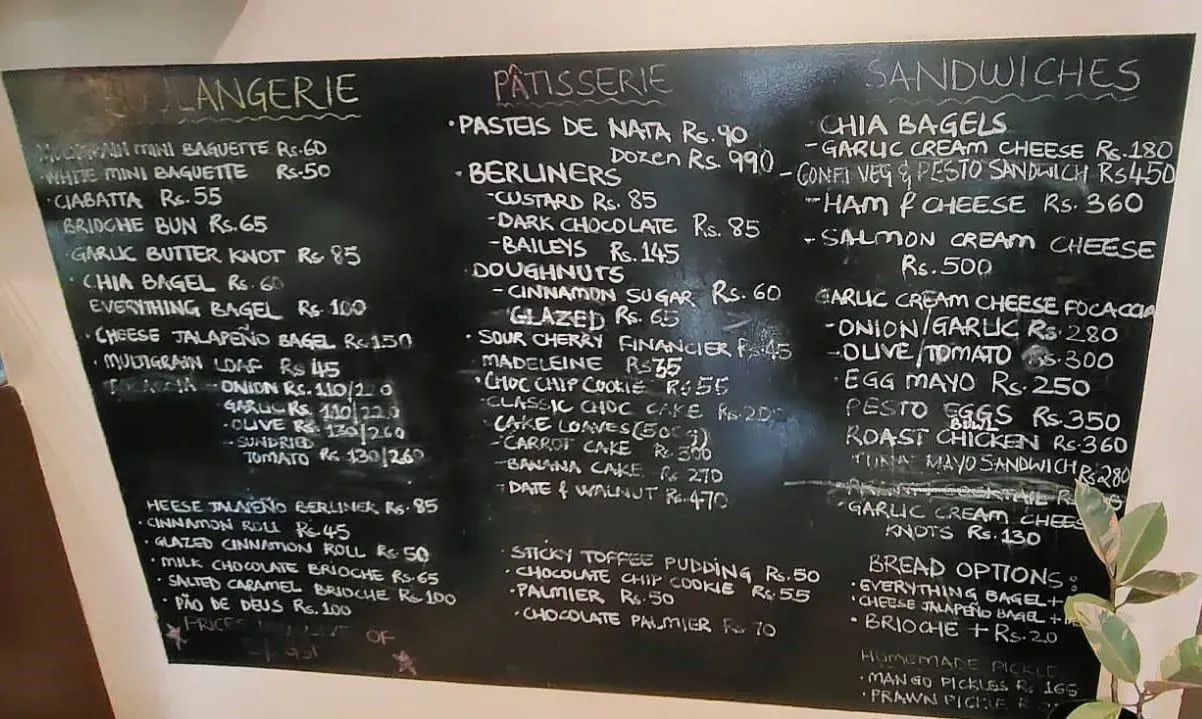 BOULANGERIE
MULTIGRAIN MINI BAGUETTE Rs.60
·WHITE MINI BAGUETTE Rs.50
·CIABATTA Rs.55
BRIOCHE BUN Rs.65
·GARLIC BUTTER KNOT Rs.85
·CHIA BAGEL Rs.60
EVERYTHING BAGEL Rs.100
·CHEESE JALAPEÑO BAGEL Rs.150
·MULTIGRAIN LOAF Rs.45
FOCACCIA - ONION Rs.110/220
GARLIC Rs.110/220
·OLIVE Rs.130/260
-SUNDRIED
TOMATO Rs.130/260
HEESE JALAPEÑO BERLINER Rs.85
·CINNAMON ROLL Rs.45
·GLAZED CINNAMON ROLL Rs.50
·MILK CHOCOLATE BRIOCHE Rs.65
·SALTED CARAMEL BRIOCHE Rs.100
·PÃO DE DEUS Rs.100
PRICES OF
PÂTISSERIE
·PASTEIS DE NATA Rs.90
DOZEN Rs.990
·BERLINERS
-CUSTARD Rs.85
-DARK CHOCOLATE Rs.85
-BAILEYS Rs.145
·DOUGHNUTS
-CINNAMON SUGAR Rs.60
GLAZED Rs.65
·SOUR CHERRY FINANCIER Rs.45
MADELEINE Rs35
·CHOC CHIP COOKIE Rs55
·CLASSIC CHOC CAKE Rs.200
·CAKE LOAVES (500g)
-CARROT CAKE Rs.300
-BANANA CAKE Rs.270
-DATE & WALNUT Rs.470
·STICKY TOFFEE PUDDING Rs.50
·CHOCOLATE CHIP COOKIE Rs.55
·PALMIER Rs.50
·CHOCOLATE PALMIER Rs.70
SANDWICHES
CHIA BAGELS
-GARLIC CREAM CHEESE Rs.180
-CONFI VEG & PESTO SANDWICH RS450
-HAM & CHEESE Rs.360
-SALMON CREAM CHEESE
Rs.500
GARLIC CREAM CHEESE FOCACCIA
-ONION/GARLIC Rs.280
-OLIVE/TOMATO Rs.300
·EGG MAYO Rs.250
PESTO EGGS Rs.350
BOWL
ROAST CHICKEN Rs.360
TUNA MAYO SANDWICH Rs280
COCKTAIL
·GARLIC CREAM CHEES
KNOTS Rs.130
BREAD OPTIONS:
·EVERYTHING BAGEL+
·CHEESE JALAPEÑO BAGEL +
·BRIOCHE + Rs.20
HOMEMADE PICKLE
·MANGO PICKLES Rs 165
·PRAWN PICKLE